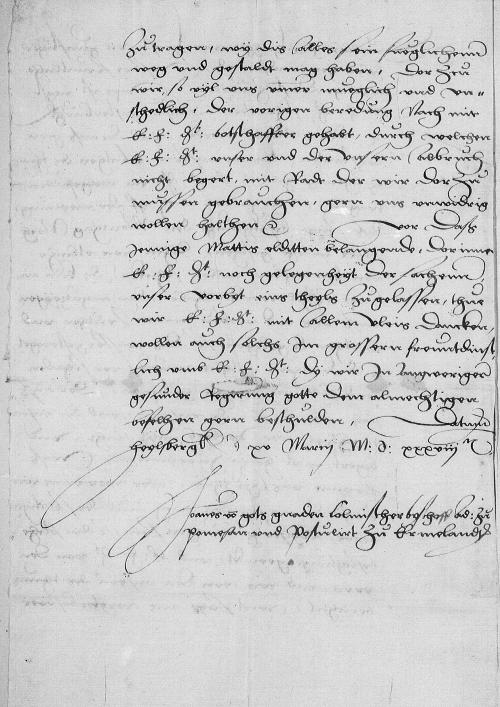 zu tragen, wy dis alles sein fueglichenn
weg und gestaldt mag haben, Dor zcu
wir, so vyl uns ymer mueglich und un=
schedlich, der vorigen beredung nach mit
E: F: Jt: botschaffter gehabt, durch welchen
E: F: Jt: unser und der unsern abbruch
nicht begert, mit Radt der wir dor zu
mussen gebrauchen, gern uns unwidrig
wollen halthen Vor dass
jennige Mattis elditten belangende, dorinne
E: F: Jt: noch gelegenheyt der sachenn
unser vorbyt eins theyls zugelassen, thue
wir E: F: Jt: mit allem vleis dancken,
wollen auch solchs Im grossern freuntdinst
lich umb E: F: Jt: dy wir In langweriger
gesunder Regirung gotte dem almechtigen
befelhen gern beschulden, Datum
heylsberg xv Martij M: D: xxxviij
Joannes vo gots gnaden Colmischer byschoff bad: zu
pomesan und Postulirt zu Ermelandt